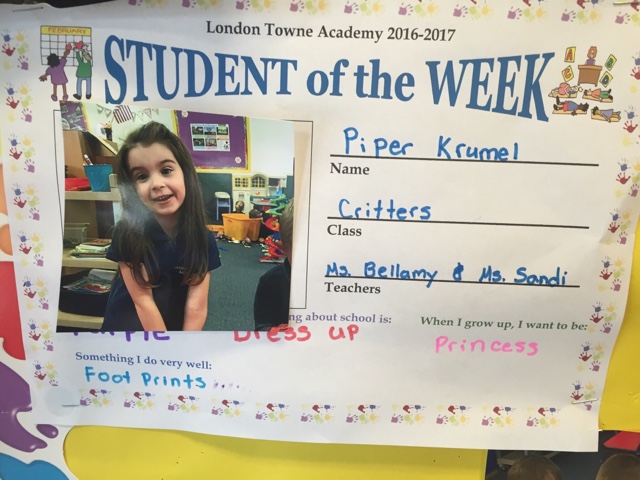 London Towne Academy 2016-2017
FEBRUARY
STUDENT of the WEEK
Piper Krumel
Name
Critters
Class
Ms. Bellamy & Ms. Sandi
Teachers
about school is:
When I grow up, I want to be:
Dress up
Princess
Something I do very well:
Foot Prints